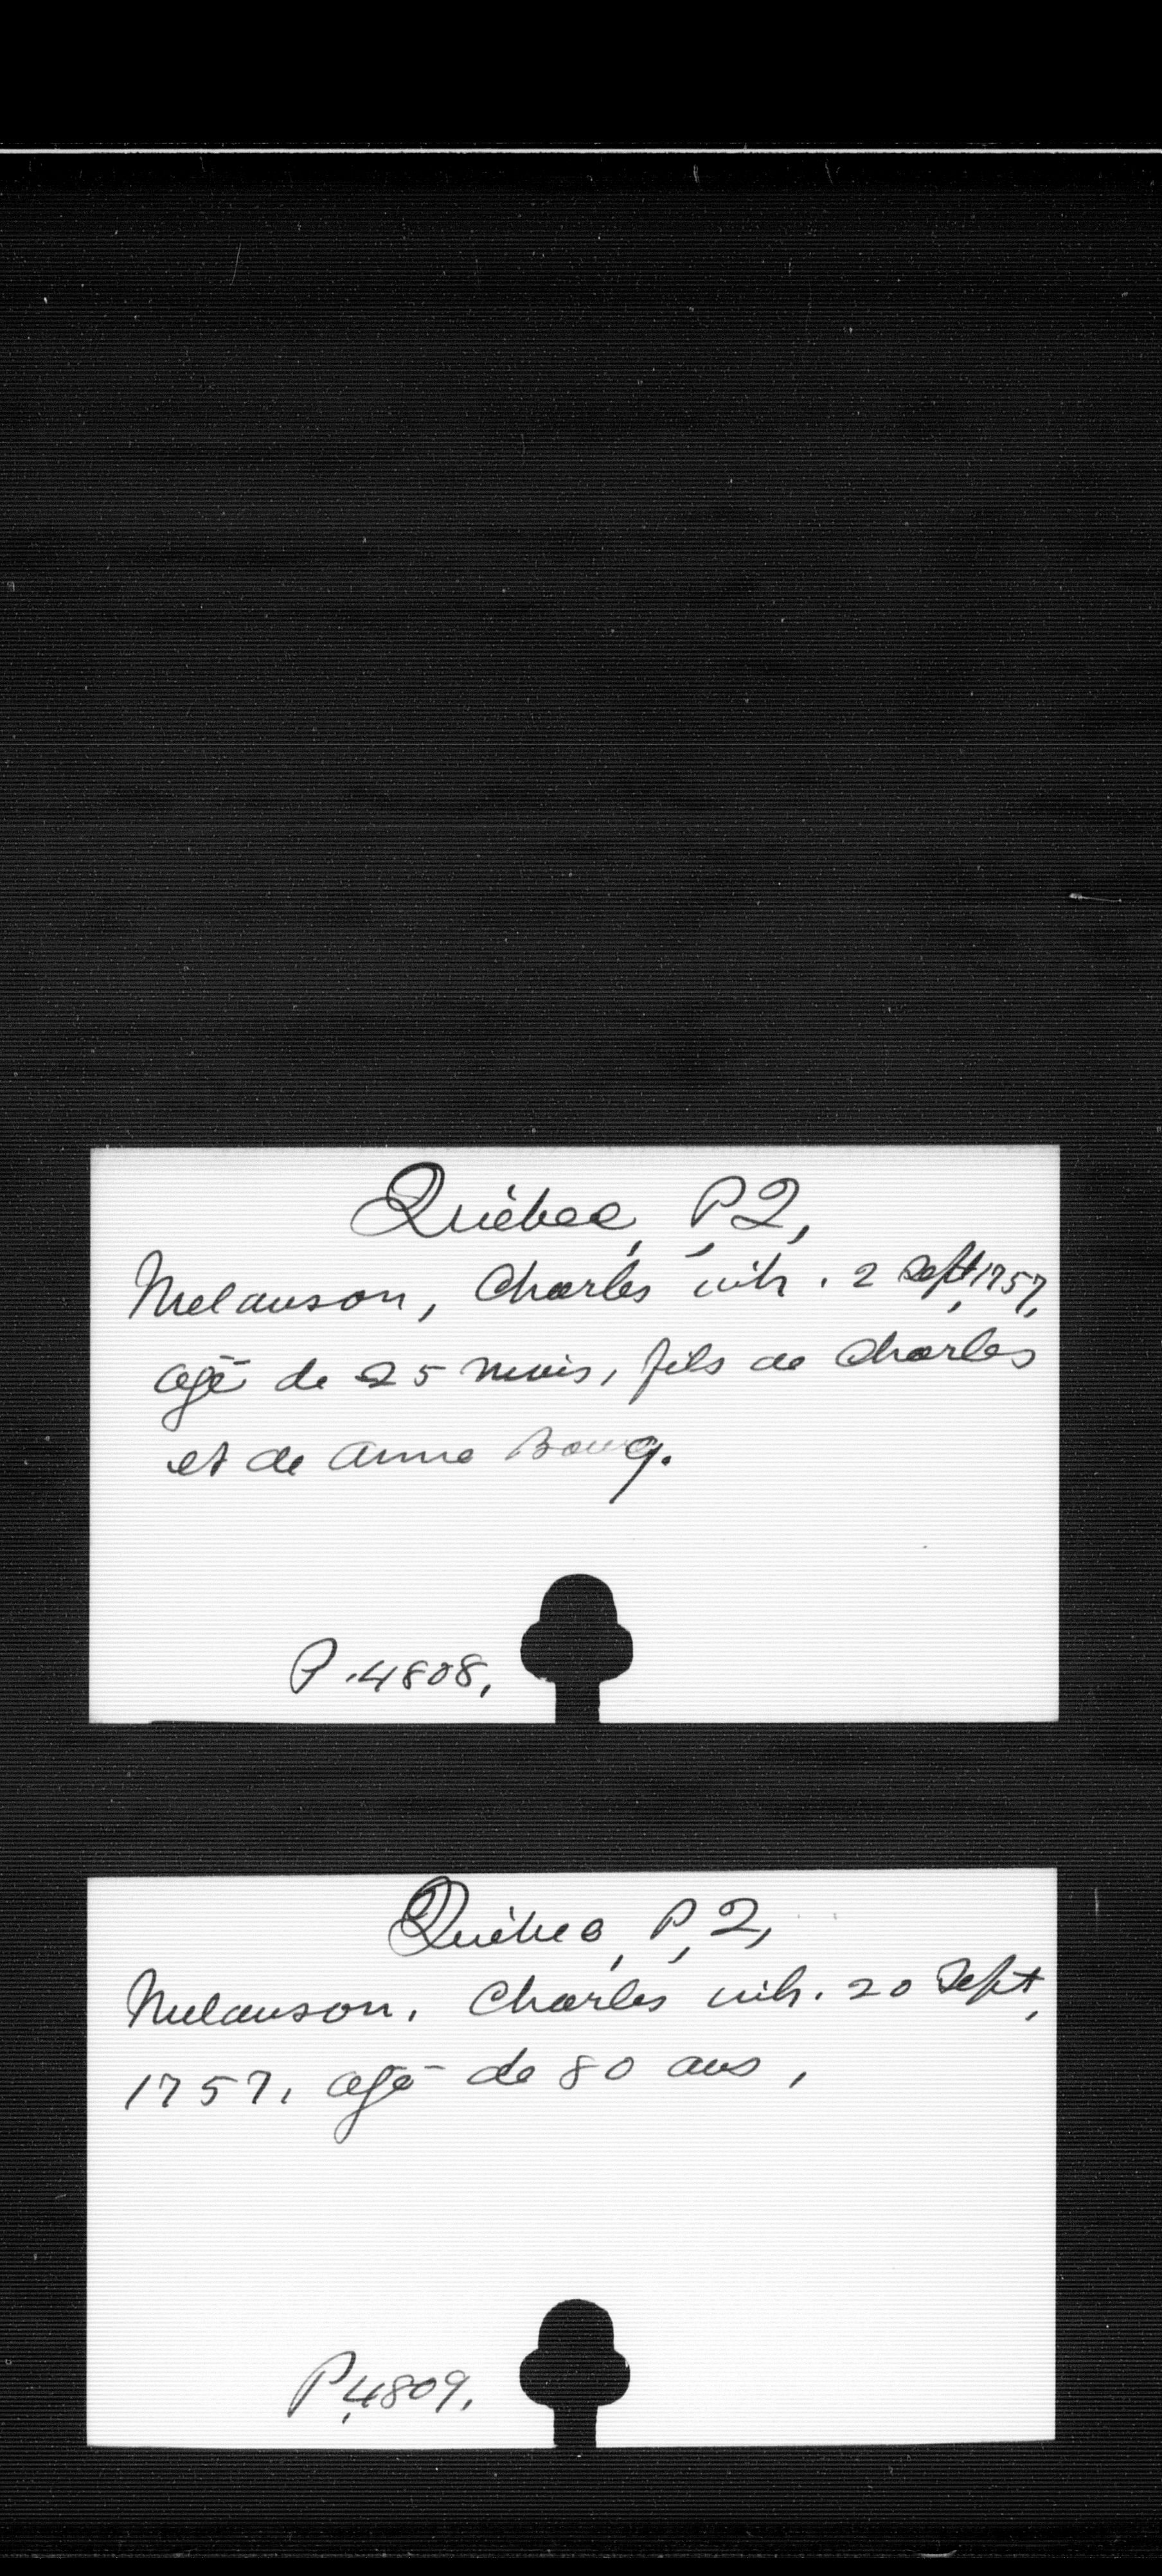 Québec, P.Q,
Melanson, Charles inh. 2 Sept, 1757,
agé de 25 mois, fils de Charles
et de Anne Bourg.
P. 4808,
Québec, P,Q,
Melanson, Charles inh. 20 Sept,
1757, agé de 80 ans,
P,4809,